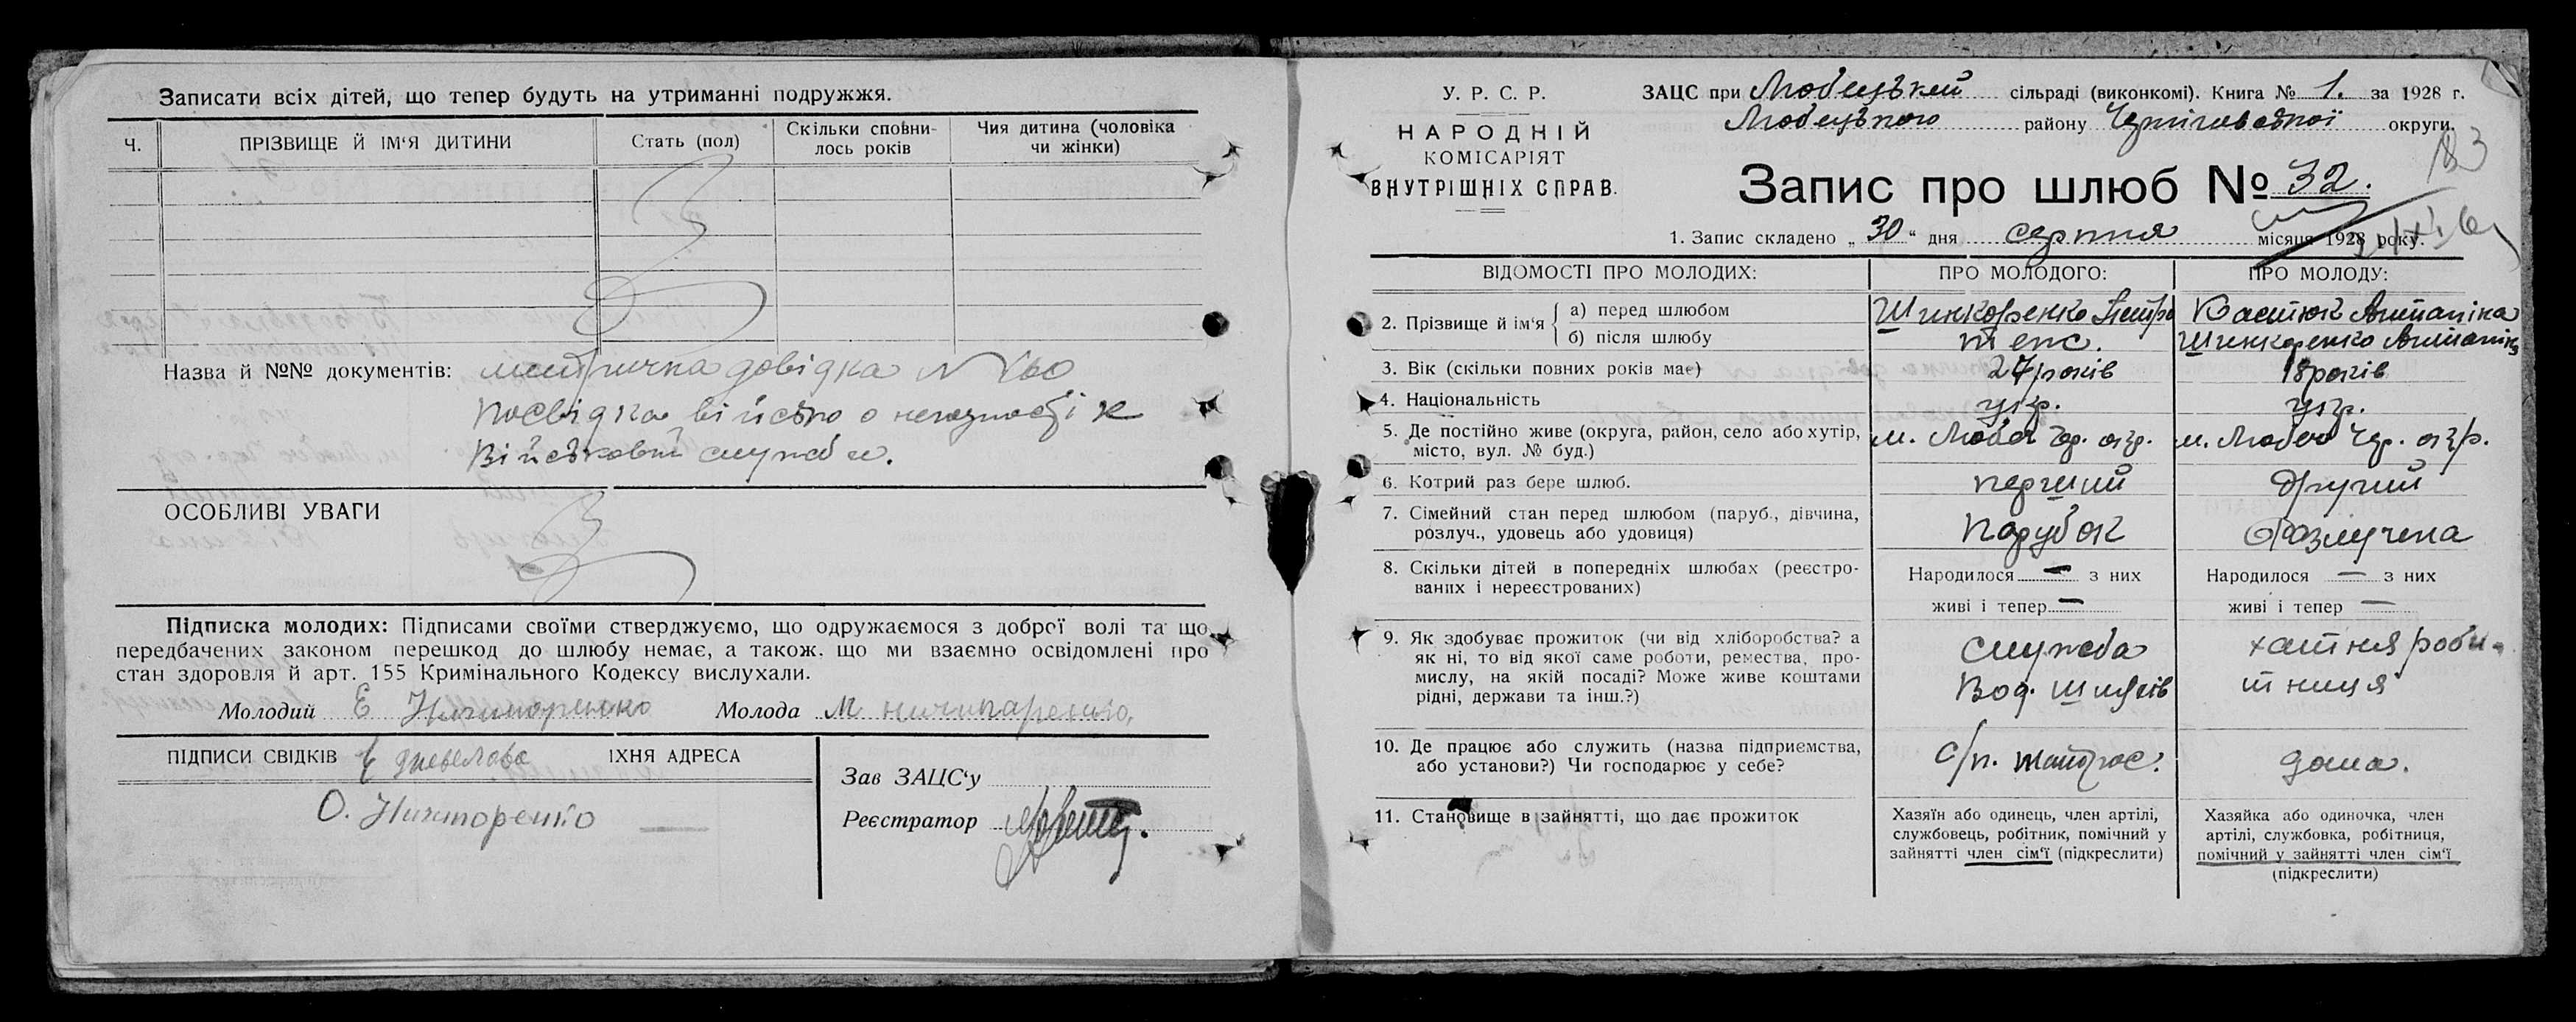 Записати всіх дітей, що тепер будуть на утриманні подружжя.
Ч.
ПРІЗВИЩЕ Й ІМ'Я ДИТИНИ
Стать (пол)
Скільки сповни-
лось років
Чия дитина (чоловіка
чи жінки)
Назва й №№ документів: метрична довідка N
Посвідка військо о негодності к
Військовій службі.
ОСОБЛИВІ УВАГИ
Підписка молодих: Підписами своїми стверджуємо, що одружаємося з доброї волі та що
передбачених законом перешкод до шлюбу немає, а також. що ми взаємно освідомлені про
стан здоров'я й арт. 155 Кримінального Кодексу вислухали.
Молодий Е Ничипоренко Молода М ничипаренко,
ПІДПИСИ СВІДКІВ
ІХНЯ АДРЕСА
О. Ничипоренко
Зав ЗАЦС'у
Реєстратор
У. Р. С. Р.
НАРОДНІЙ
КОМІСАРІЯТ
ВНУТРІШНІХ СПРАВ.
ЗАЦС при Любецький сільраді (виконкомі). Книга № 1. за 1928 г.
Любецького району Чернігівської округи.
183
Запис про шлюб № 32.
1. Запис складено „30“ дня серпня місяця 1928 року.
ВІДОМОСТІ ПРО МОЛОДИХ:
ПРО МОЛОДОГО:
ПРО МОЛОДУ:
2. Прізвище й ім'я
а) перед шлюбом
Шинкоренко Петро
Костюк Антаніна
б) після шлюбу
теж.
Шинкоренко Антаніна
3. Вік (скільки повних років має)
27 років
18 років
4. Національність
укр.
укр.
5. Де постійно живе (округа, район, село або хутір,
місто, вул. № буд.)
м. Любеч Чер. окр.
м. Любеч Чер. окр.
6. Котрий раз бере шлюб.
перший
другий
7. Сімейний стан перед шлюбом (паруб., дівчина,
розлуч., удовець або удовиця)
Парубок
Розлучена
8. Скільки дітей в попередніх шлюбах (реєстро-
ваних і нереєстрованих)
Народилося — з них
живі і тепер —
Народилося — з них
живі і тепер —
9. Як здобуває прожиток (чи від хліборобства? а
як ні, то від якої саме роботи, ремества, про-
мислу, на якій посаді? Може живе коштами
рідні, держави та інш.?)
служба
Вод. шляхів
хатня роби-
тниця
10. Де працює або служить (назва підприємства,
або установи?) Чи господарює у себе?
с/п. матрос.
дома.
11. Становище в зайнятті, що дає прожиток
Хазяїн або одинець, член артілі,
службовець, робітник, помічний у
зайнятті член сім'ї (підкреслити)
Хазяйка або одиночка, член
артілі, службовка, робітниця,
помічний у зайнятті член сім'ї
(підкреслити)